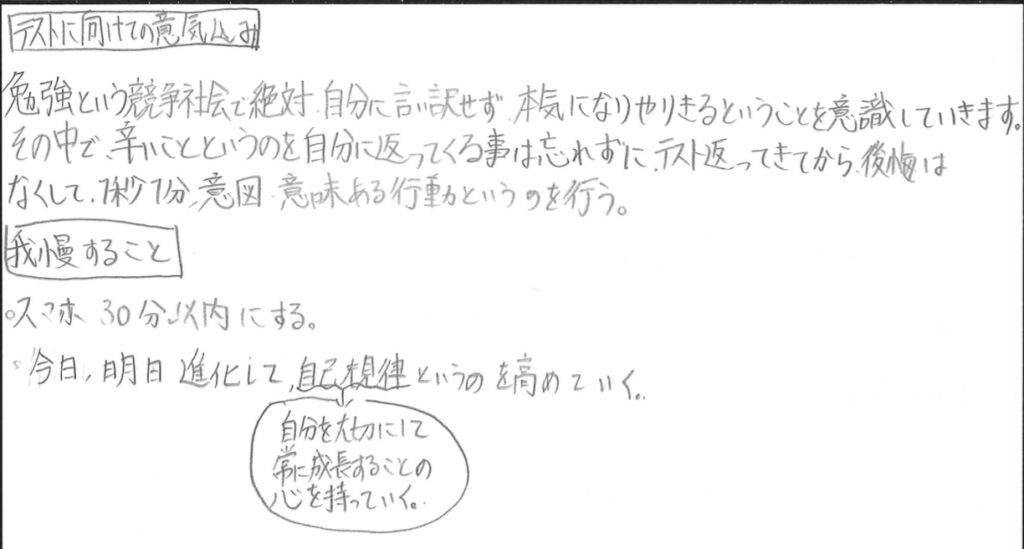 テストに向けての意気込み
勉強という競争社会で絶対、自分に言い訳せず、本気になりやりきるということを意識していきます。
その中で、辛いことというのを自分に返ってくる事は忘れずに、テスト返ってきてから、後悔は
なくして、1秒1分、意図、意味ある行動というのを行う。
我慢すること
○スマホ 30分以内にする。
・今日、明日進化して、自己想律というのを高めていく。
自分を大切にして
常に成長することの
心を持っていく。